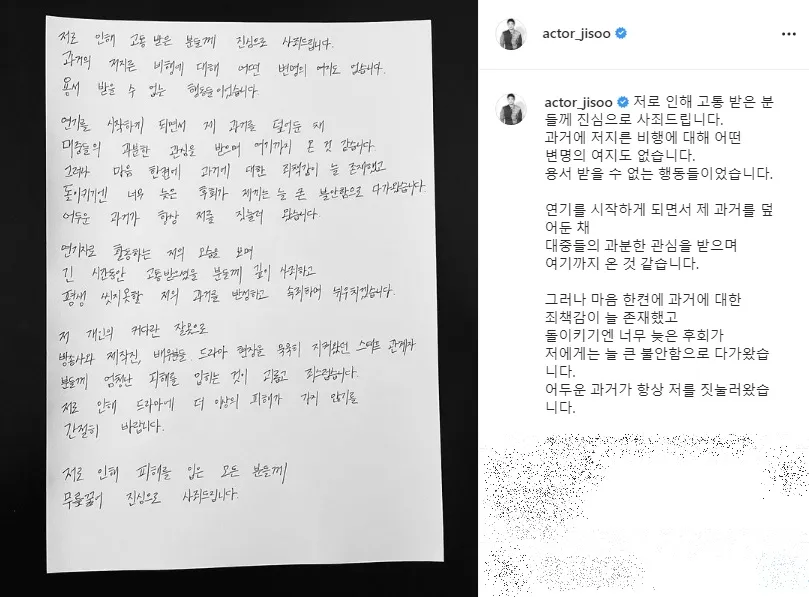 저로 인해 고통 받은 분들께 진심으로 사죄드립니다.
과거의 저지른 비행에 대해 어떤 변명의 여지도 없습니다.
용서 받을 수 없는 행동들이었습니다.
연기를 시작하게 되면서 제 과거를 덮어둔 채
대중들의 과분한 관심을 받으며 여기까지 온 것 같습니다.
그러나 마음 한켠에 과거에 대한 죄책감이 늘 존재했고
돌이키기엔 너무 늦은 후회가 제게는 늘 큰 불안함으로 다가왔습니다.
어두운 과거가 항상 저를 짓눌러 왔습니다.
연기자로 활동하는 저의 모습을 보며
긴 시간동안 고통받으셨을 분들께 깊이 사죄하고
평생 씻지못할 저의 과거를 반성하고 속죄하며 뉘우치겠습니다.
저 개인의 커다란 잘못으로
방송사와 제작진, 배우들, 드라마 현장을 묵묵히 지켜왔던 스태프 관계자
분들께 엄청난 피해를 입히는 것이 괴롭고 죄스럽습니다.
저로 인해 드라마에 더 이상의 피해가 가지 않기를
간절히 바랍니다.
저로 인해 피해를 입은 모든 분들께
무릎꿇어 진심으로 사죄드립니다.
actor_jisoo
actor_jisoo 저로 인해 고통 받은 분
들께 진심으로 사죄드립니다.
과거에 저지른 비행에 대해 어떤
변명의 여지도 없습니다.
용서 받을 수 없는 행동들이었습니다.
연기를 시작하게 되면서 제 과거를 덮
어둔 채
대중들의 과분한 관심을 받으며
여기까지 온 것 같습니다.
그러나 마음 한켠에 과거에 대한
죄책감이 늘 존재했고
돌이키기엔 너무 늦은 후회가
저에게는 늘 큰 불안함으로 다가왔습
니다.
어두운 과거가 항상 저를 짓눌러왔습
니다.